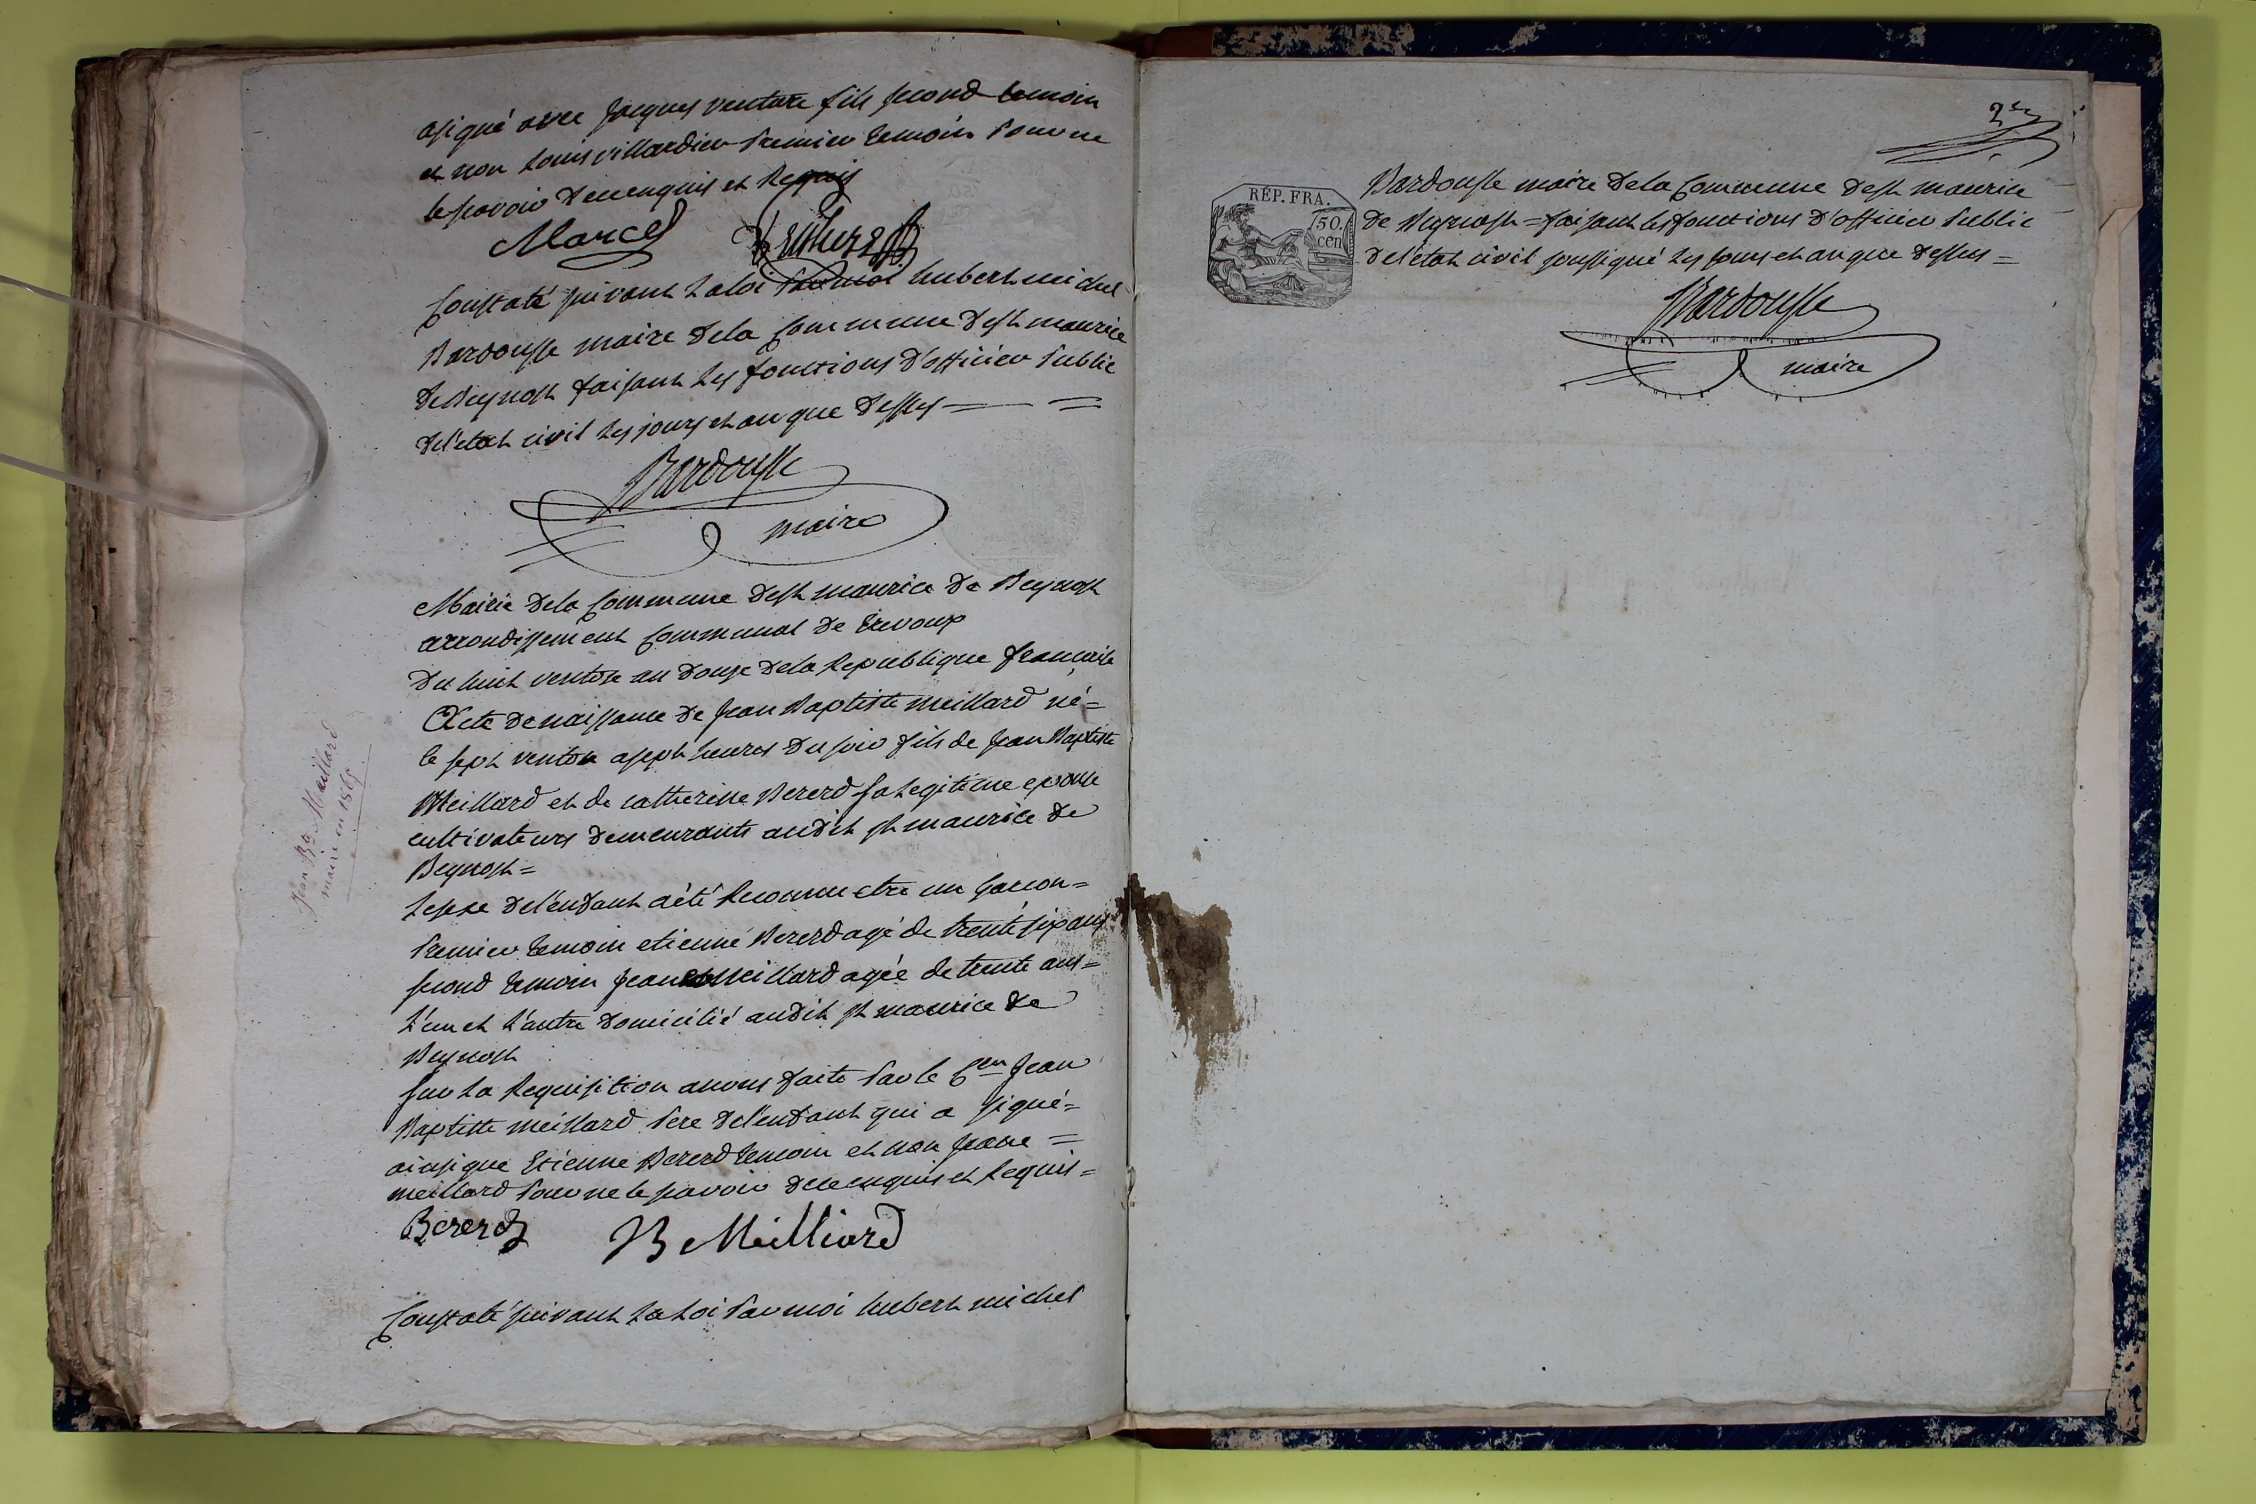 asigné avec Jacques venture fils second temoin
et non Louis villardier Premier temoin Pour ne
le savoir de ce enquis et Requis
Marcel Venture fils
Constaté suivant La loi Par moi hubert michel
Bardousse maire dela Commune de st maurice
de Beynost faisant Les fonctions d'officier Public
del'état civil Les jours et an que dessus =
Bardousse
maire
Mairie dela Commune de st maurice de Beynost
arrondissement Communal de trevoux
Du huit ventose an douze dela Republique francaise
Acte de naissance de Jean Baptiste meillard né =
le sept ventose asept heures du soir fils de Jean Baptiste
Meillard et de catherine Bererd sa Legitime epouse
cultivateurs demeurants audit st maurice de
Beynost =
Le sexe del'enfant a été Reconnu etre un garcon =
Premier temoin etienne Bererd agé de trente six ans
second temoin Jean Meillard agée de trente ans =
L'un et L'autre domicilié audit st maurice de
Beynost
sur La Requisition anous faite Par le Cen Jean
Baptiste meillard Pere del'enfant qui a signé =
ainsi que Etienne Bererd temoin et non Jean =
meillard Pour ne le savoir de ce enquis et Requis =
Bererd JB Meilliard
Constaté suivant La Loi Par moi hubert michel
Jean Bte Maillard
maire en 1815
RÉP. FRA.
50.
cen
Bardousse maire dela Commune de st maurice
de Beynost = faisant les fonctions d'officier Public
del'état civil soussigné Les jours et an que dessus =
Bardousse
maire